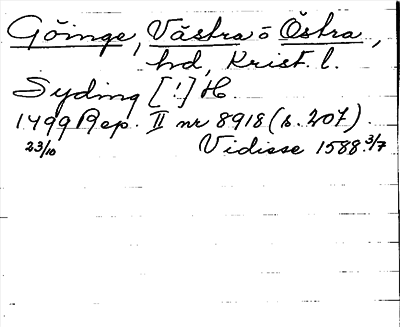 Göinge, Västra o Östra,
hd, Krist. l.
Syding [!] H.
1499 Rep. II nr 8918 (s. 207).
23/10 Vidisse 1588 3/7